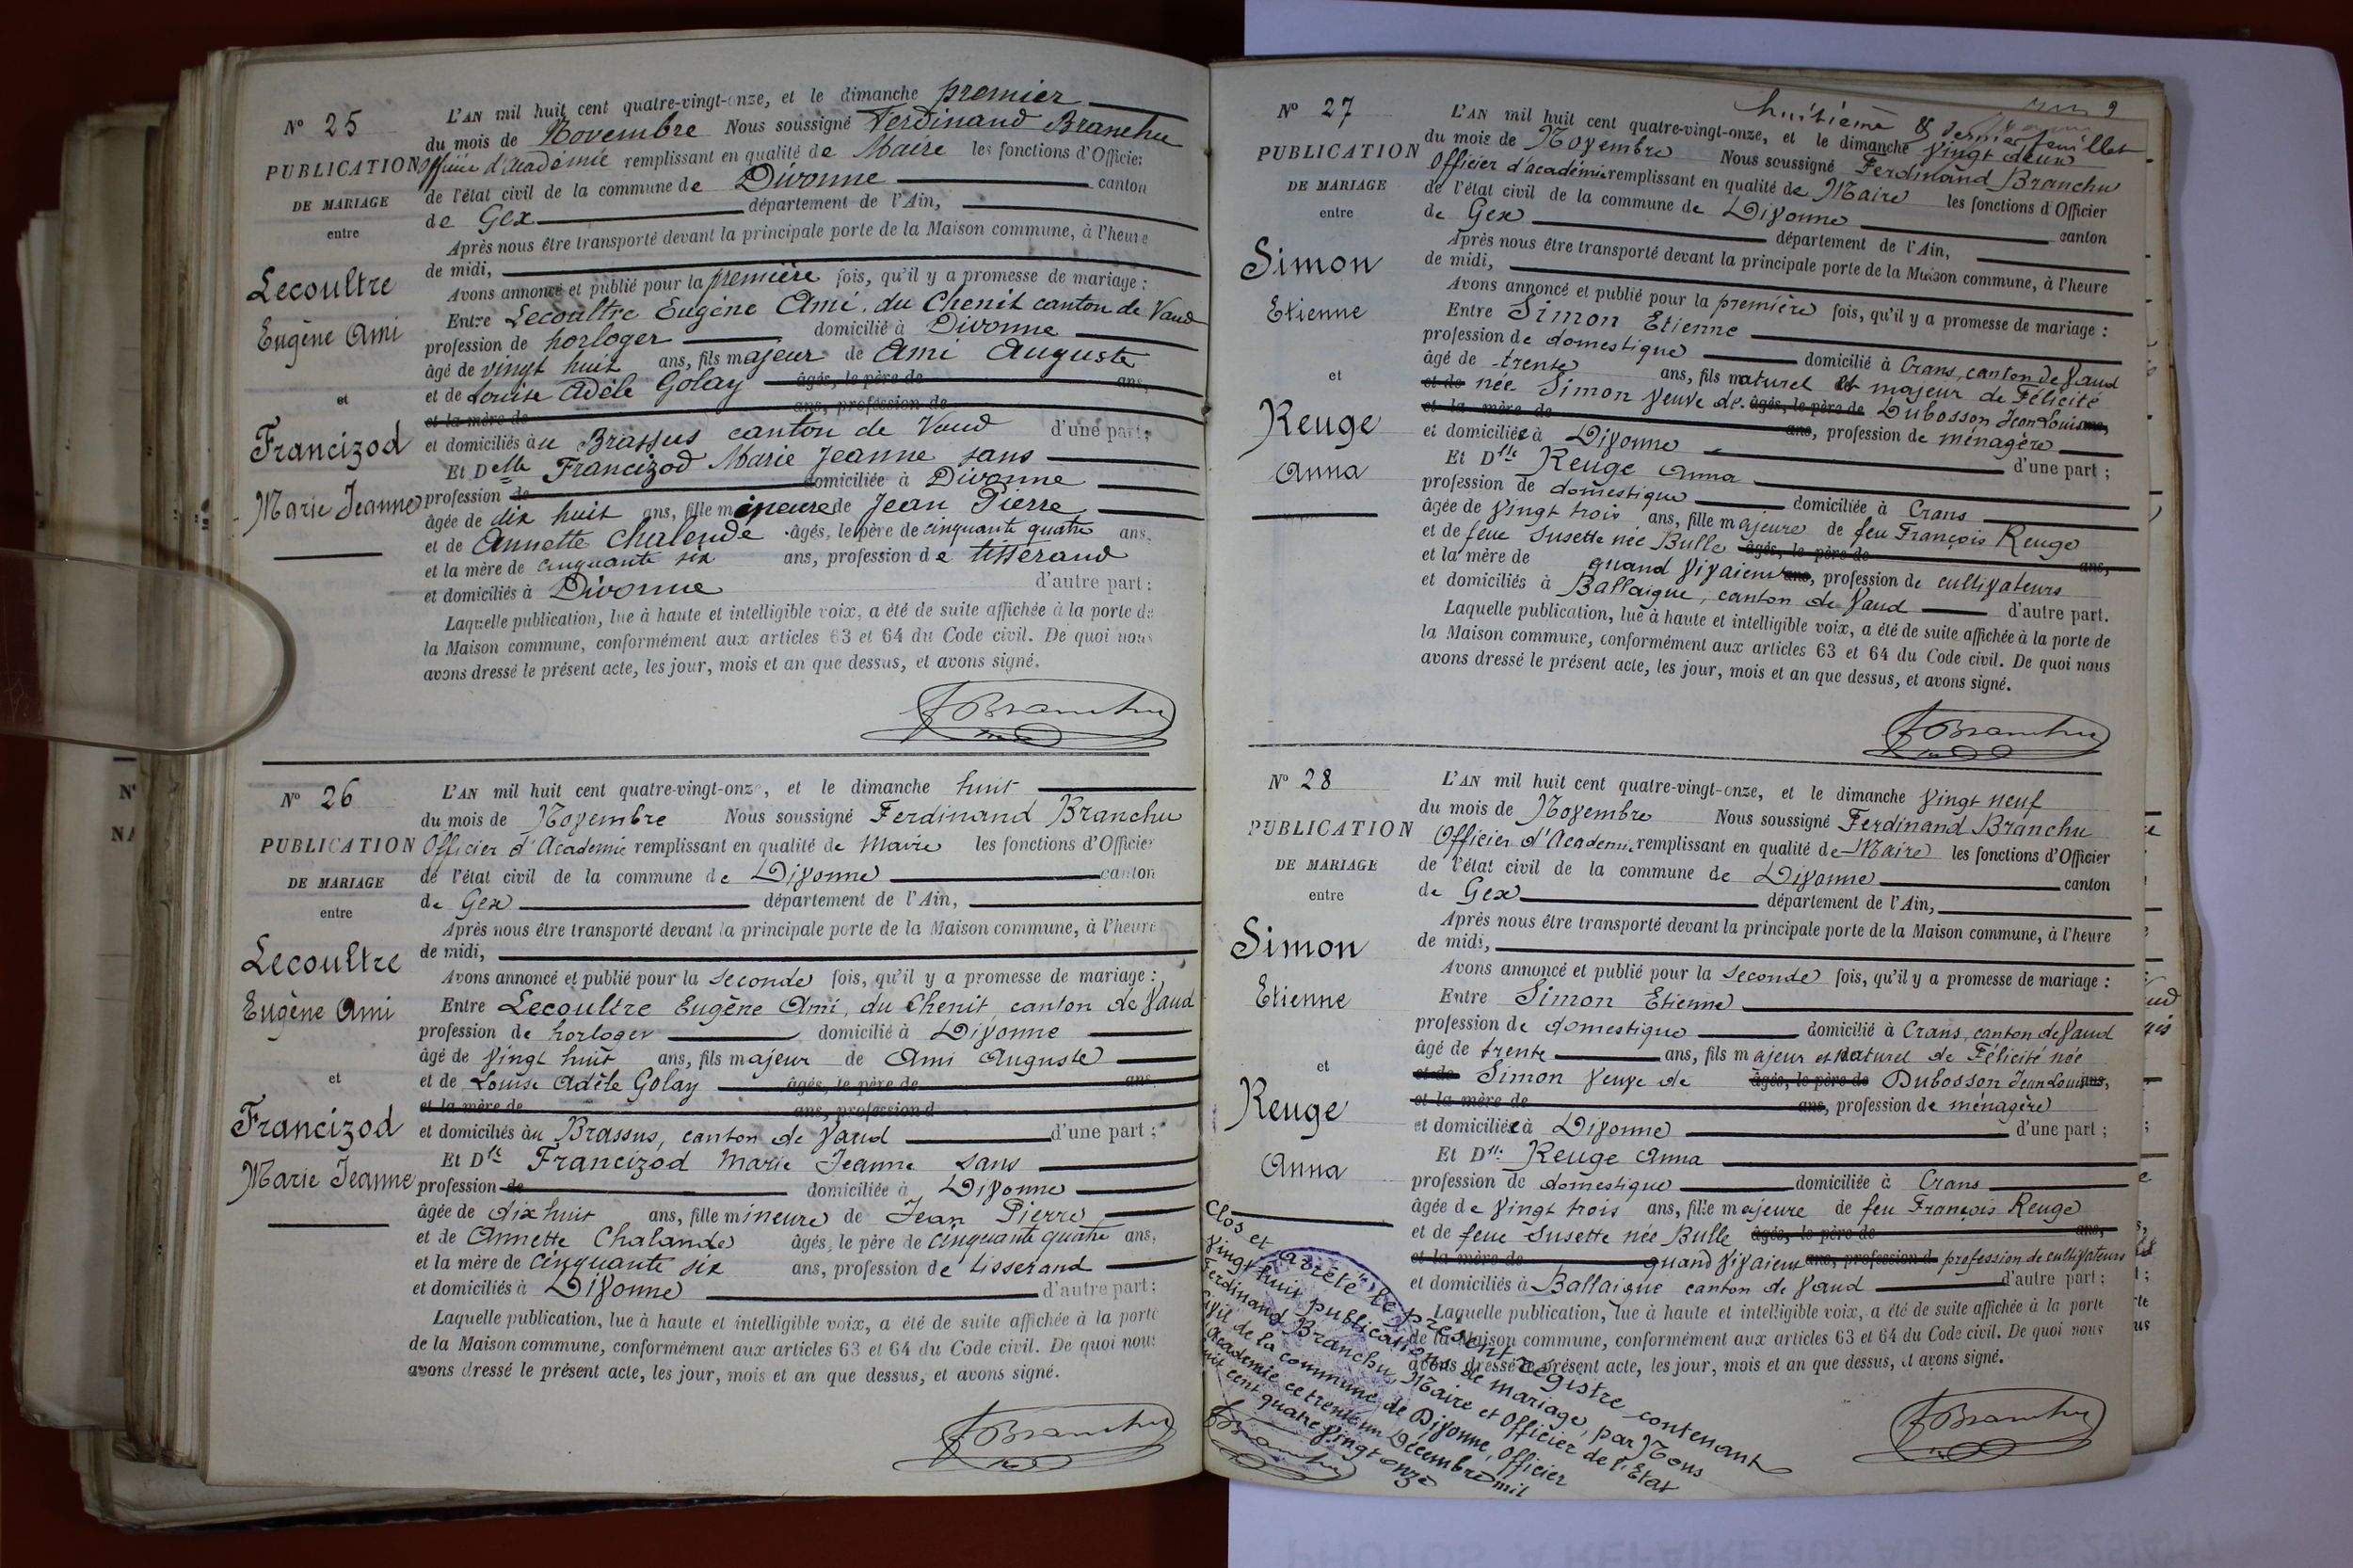 N° 25
PUBLICATION
DE MARIAGE
entre
Lecoultre
Eugène Ami
et
Francizod
Marie Jeanne
L'AN mil huit cent quatre-vingt-onze, et le dimanche premier
du mois de Novembre Nous soussigné Ferdinand Branchu
Officier d'académie remplissant en qualité de Maire les fonctions d'Officier
de l'état civil de la commune de Divonne canton
de Gex département de l'Ain,
Après nous être transporté devant la principale porte de la Maison commune, à l'heure
de midi,
Avons annoncé et publié pour la première fois, qu'il y a promesse de mariage :
Entre Lecoultre Eugène Ami, du Chenit canton de Vaud
profession de horloger domicilié à Divonne
âgé de vingt huit ans, fils majeur de Ami Auguste
et de Louise Adèle Golay âgés, le père de ans,
et la mère de ans, profession de
et domiciliés au Brassus canton de Vaud d'une part;
Et Delle Francizod Marie Jeanne sans
profession de domiciliée à Divonne
âgée de dix huit ans, fille mineure de Jean Pierre
et de Annette Chalende âgés, le père de cinquante quatre ans,
et la mère de cinquante six ans, profession de tisserand
et domiciliés à Divonne d'autre part :
Laquelle publication, lue à haute et intelligible voix, a été de suite affichée à la porte de
la Maison commune, conformément aux articles 63 et 64 du Code civil. De quoi nous
avons dressé le présent acte, les jour, mois et an que dessus, et avons signé.
FBranchu
N° 26
PUBLICATION
DE MARIAGE
entre
Lecoultre
Eugène Ami
et
Francizod
Marie Jeanne
L'AN mil huit cent quatre-vingt-onze, et le dimanche huit
du mois de Novembre Nous soussigné Ferdinand Branchu
Officier d'Academie remplissant en qualité de Maire les fonctions d'Officier
de l'état civil de la commune de Divonne canton
de Gex département de l'Ain,
Après nous être transporté devant la principale porte de la Maison commune, à l'heure
de midi,
Avons annoncé et publié pour la seconde fois, qu'il y a promesse de mariage :
Entre Lecoultre Eugène Ami, du Chenit, canton de Vaud
profession de horloger domicilié à Divonne
âgé de vingt huit ans, fils majeur de Ami Auguste
et de Louise Adèle Golay âgés, le père de ans,
et la mère de ans, profession d
et domiciliés au Brassus, canton de Vaud d'une part ;
Et Dlle Francizod Marie Jeanne sans
profession de domiciliée à Divonne
âgée de dix huit ans, fille mineure de Jean Pierre
et de Annette Chalande âgés, le père de cinquante quatre ans,
et la mère de cinquante six ans, profession de tisserand
et domiciliés à Divonne d'autre part :
Laquelle publication, lue à haute et intelligible voix, a été de suite affichée à la porte
de la Maison commune, conformément aux articles 63 et 64 du Code civil. De quoi nous
avons dressé le présent acte, les jour, mois et an que dessus, et avons signé.
FBranchu
huitième & dernier feuillet
9
N° 27
PUBLICATION
DE MARIAGE
entre
Simon
Etienne
et
Reuge
Anna
L'AN mil huit cent quatre-vingt-onze, et le dimanche vingt deux
du mois de Novembre Nous soussigné Ferdinand Branchu
Officier d'académie remplissant en qualité de Maire les fonctions d'Officier
de l'état civil de la commune de Divonne canton
de Gex département de l'Ain,
Après nous être transporté devant la principale porte de la Maison commune, à l'heure
de midi,
Avons annoncé et publié pour la première fois, qu'il y a promesse de mariage :
Entre Simon Etienne
profession de domestique domicilié à Crans, canton de Vaud
âgé de trente ans, fils naturel et majeur de Félicité
et de née Simon veuve de âgés, le père de Dubosson Jean Louis ans,
et la mère de ans, profession de ménagère
et domiciliée à Divonne d'une part ;
Et Dlle Reuge Anna
profession de domestique domiciliée à Crans
âgée de vingt trois ans, fille majeure de feu François Reuge
et de feue Susette née Bulle âgés, le père de ans,
et la mère de quand vivaient ans, profession de cultivateurs
et domiciliés à Ballaigue, canton de Vaud d'autre part.
Laquelle publication, lue à haute et intelligible voix, a été de suite affichée à la porte de
la Maison commune, conformément aux articles 63 et 64 du Code civil. De quoi nous
avons dressé le présent acte, les jour, mois et an que dessus, et avons signé.
FBranchu
N° 28
PUBLICATION
DE MARIAGE
entre
Simon
Etienne
et
Reuge
Anna
L'AN mil huit cent quatre-vingt-onze, et le dimanche vingt neuf
du mois de Novembre Nous soussigné Ferdinand Branchu
Officier d'Academie remplissant en qualité de Maire les fonctions d'Officier
de l'état civil de la commune de Divonne canton
de Gex département de l'Ain,
Après nous être transporté devant la principale porte de la Maison commune, à l'heure
de midi,
Avons annoncé et publié pour la seconde fois, qu'il y a promesse de mariage :
Entre Simon Etienne
profession de domestique domicilié à Crans, canton de Vaud
âgé de trente ans, fils majeur et naturel de Félicité née
et de Simon veuve de âgés, le père de Dubosson Jean Louis ans,
et la mère de ans, profession de ménagère
et domiciliée à Divonne d'une part ;
Et Dlle Reuge Anna
profession de domestique domiciliée à Crans
âgée de vingt trois ans, fille majeure de feu François Reuge
et de feue Susette née Bulle âgés, le père de ans,
et la mère de quand vivaient ans, profession d profession de cultivateurs
et domiciliés à Ballaigue canton de Vaud d'autre part ;
Laquelle publication, lue à haute et intelligible voix, a été de suite affichée à la porte
de la Maison commune, conformément aux articles 63 et 64 du Code civil. De quoi nous
avons dressé le présent acte, les jour, mois et an que dessus, et avons signé.
FBranchu
Clos et arrêté le présent registre contenant
vingt huit publications de mariage, par Nous
Ferdinand Branchu, Maire et Officier de l'Etat
Civil de la commune de Divonne, Officier
Academie ce trente un Décembre mil
huit cent quatre vingt onze
FBranchu